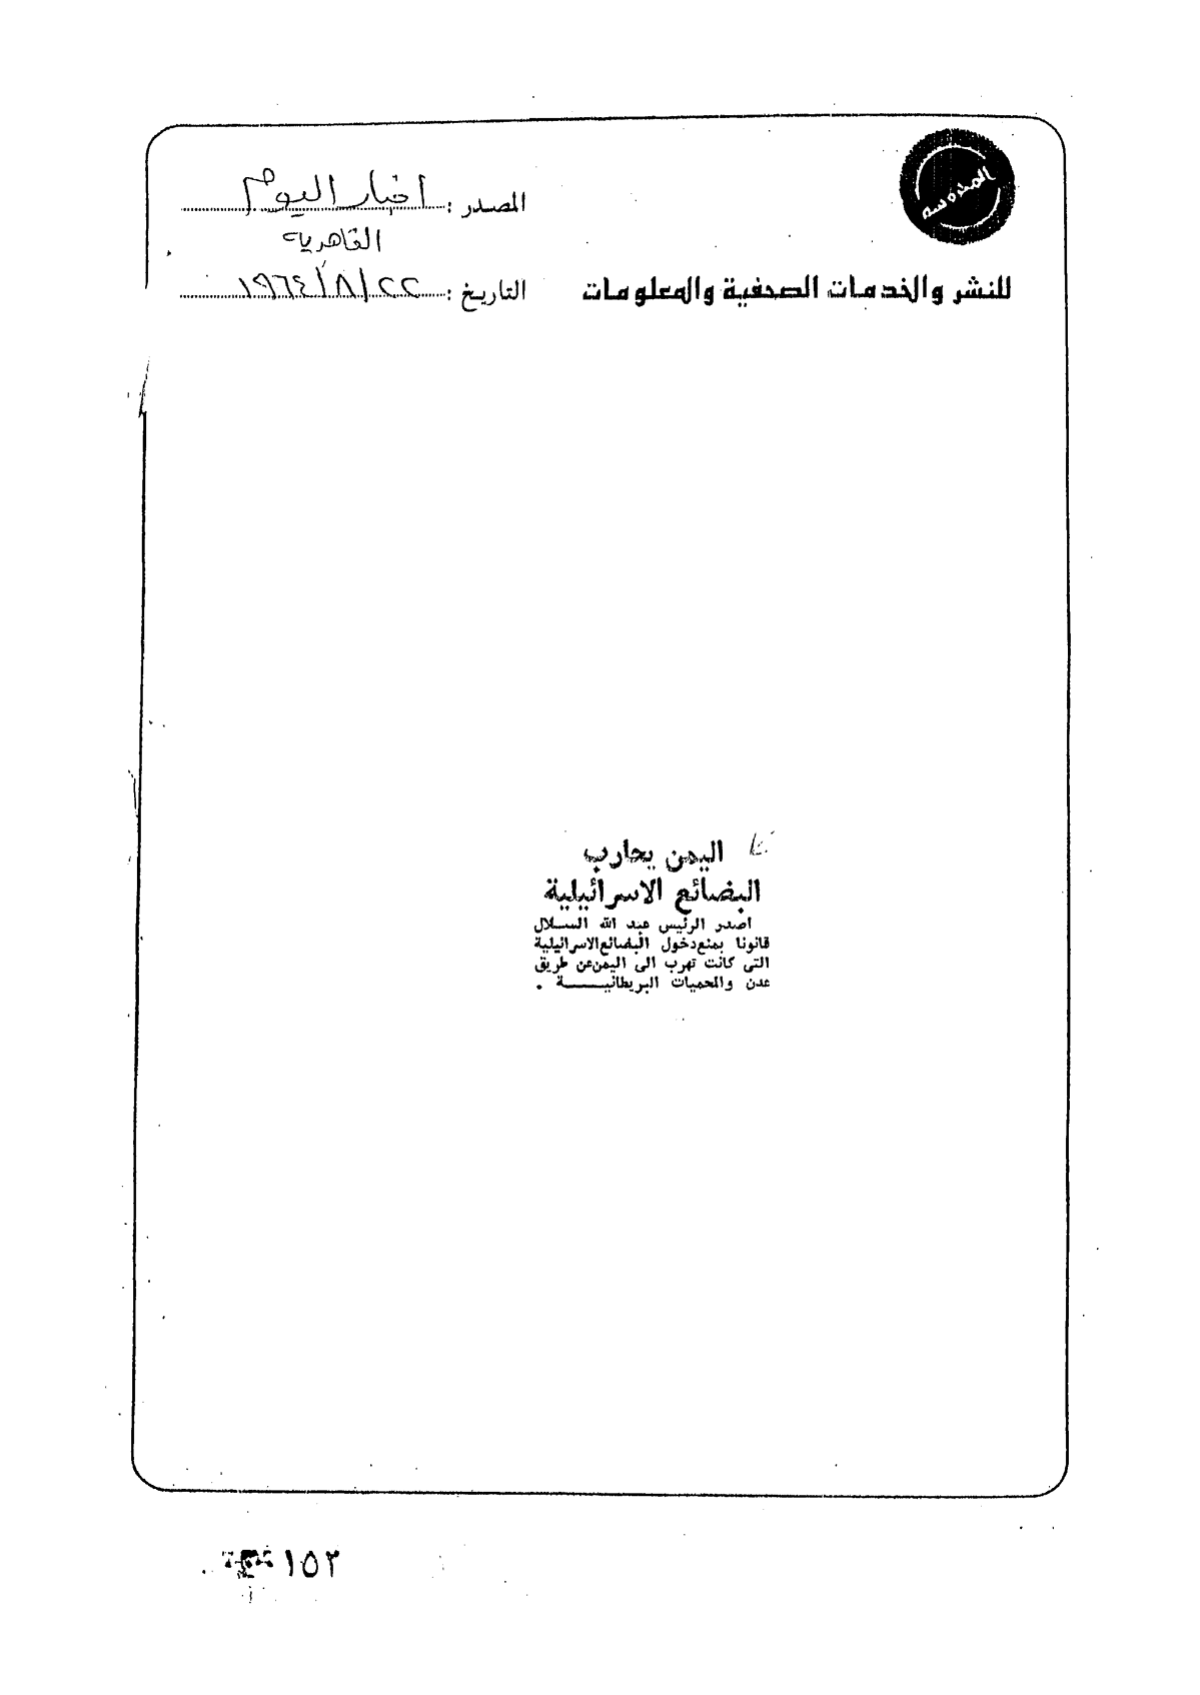 المدروسه
المصدر : اخبار اليوم
القاهرية
للنشر والخدمات الصحفية والمعلومات
التاريخ : ٢٢/٨/١٩٦٤
اليمن يحارب
البضائع الاسرائيلية
اصدر الرئيس عبد الله السلال
قانونا بمنع دخول البضائع الاسرائيلية
التى كانت تهرب الى اليمن عن طريق
عدن والمحميات البريطانيـــة .
١٥٢